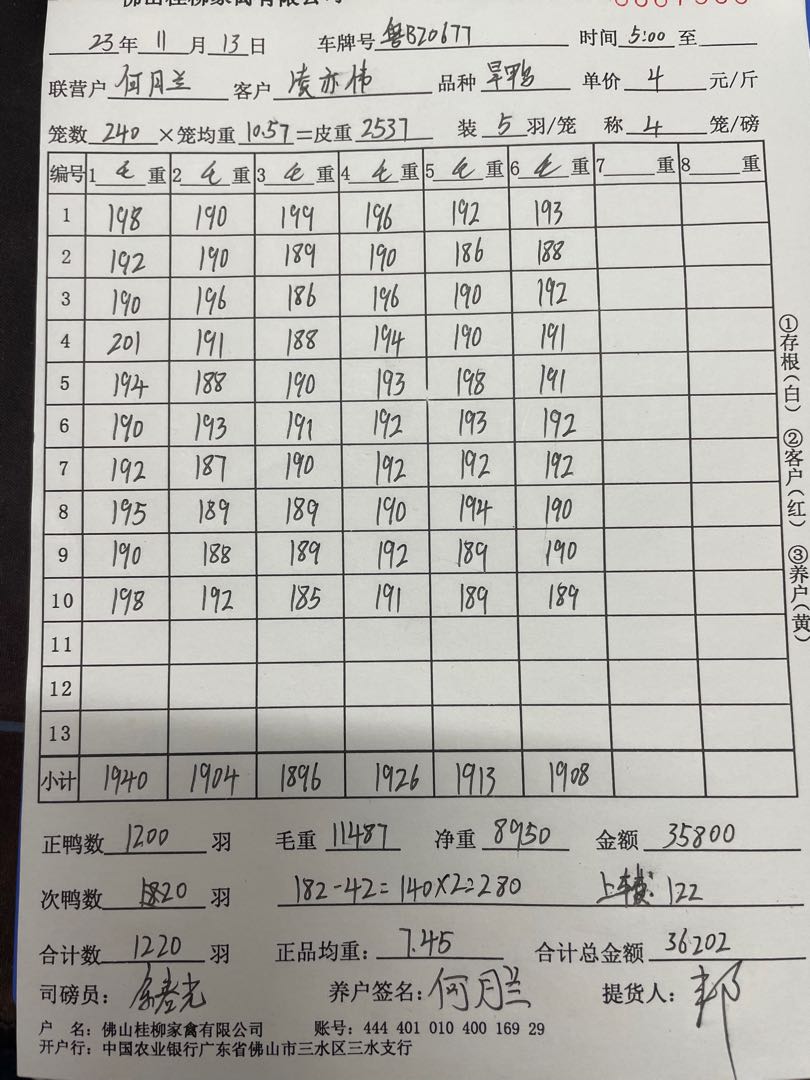 佛山桂柳家禽有限公司
23年 11 月 13 日 车牌号 粤BZ0677 时间 5:00 至
联营户 何月兰 客户 凌亦伟 品种 旱鸭 单价 4 元/斤
笼数 240 ×笼均重 10.57 =皮重 2537 装 5 羽/笼 称 4 笼/磅
编号 1 毛 重 2 毛 重 3 毛 重 4 毛 重 5 毛 重 6 毛 重 7 重 8 重
1 198 190 199 196 192 193
2 192 190 189 190 186 188
3 190 196 186 196 190 192
4 201 191 188 194 190 191
5 194 188 190 193 198 191
6 190 193 191 192 193 192
7 192 187 190 192 192 192
8 195 189 189 190 194 190
9 190 188 189 192 189 190
10 198 192 185 191 189 189
11
12
13
小计 1940 1904 1896 1926 1913 1908
正鸭数 1200 羽 毛重 11487 净重 8950 金额 35800
次鸭数 20 羽 182-42=140×2=280 上车费: 122
合计数 1220 羽 正品均重: 7.45 合计总金额 36202
司磅员: 养户签名: 何月兰 提货人: 邦
户 名: 佛山桂柳家禽有限公司 账号: 444 401 010 400 169 29
开户行: 中国农业银行广东省佛山市三水区三水支行
①存根(白) ②客户(红) ③养户(黄)